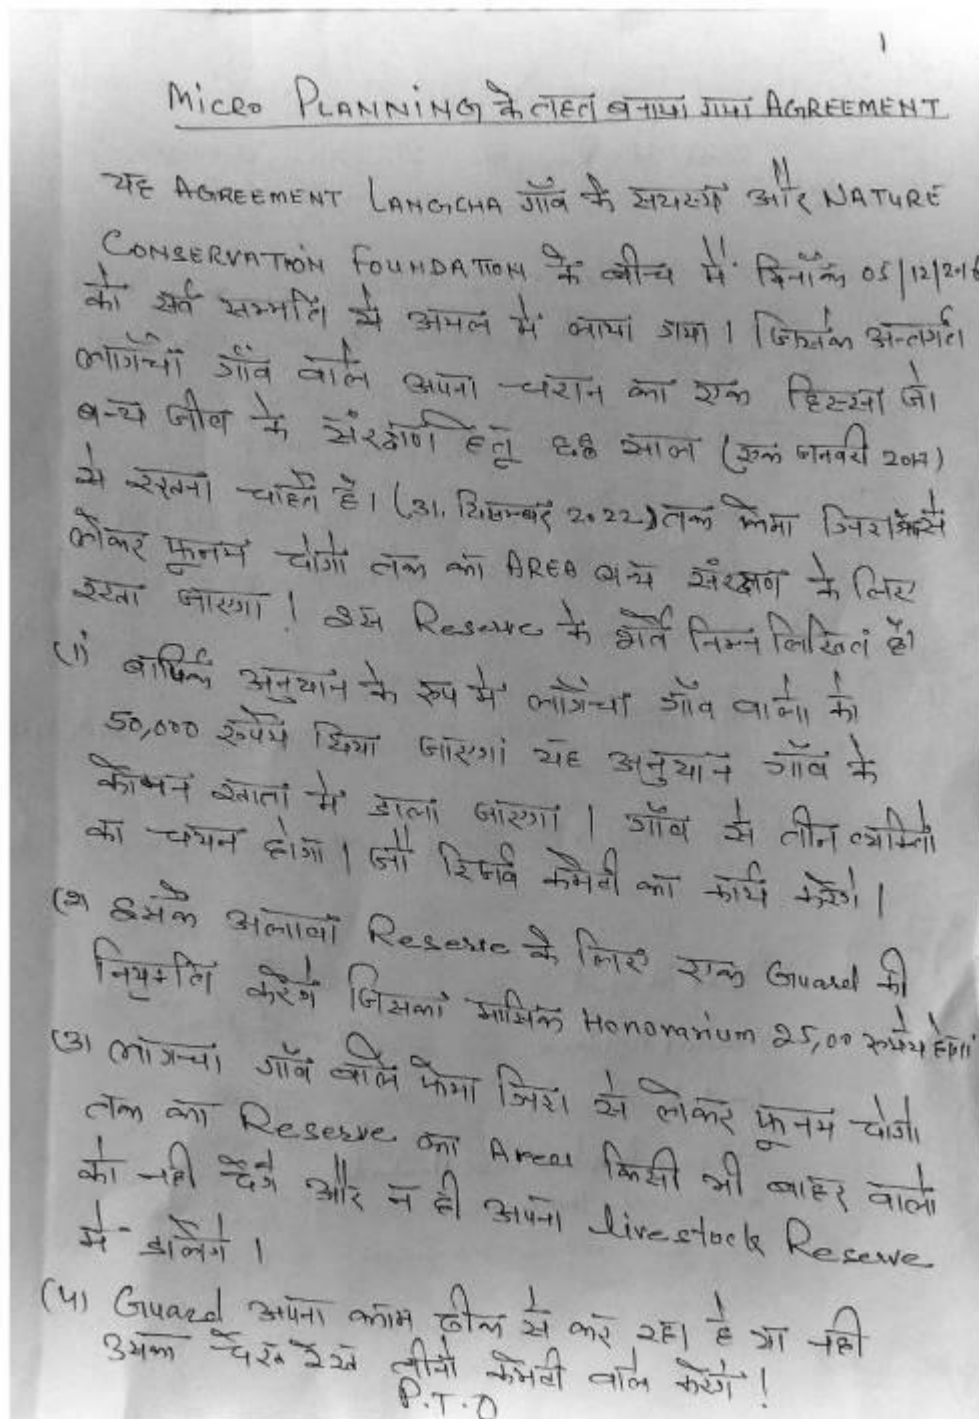 1
MICRO PLANNING के तहत बनाया गया AGREEMENT
यह AGREEMENT LANGCHA गाँव के सदस्यों और NATURE
CONSERVATION FOUNDATION के बीच में दिनाँक 05/12/2016
को सर्व सम्मति से अमल में लाया गया। जिसके अन्तर्गत
लांगचा गाँव वाले अपना चरान का एक हिस्सा जो
वन्य जीव के संरक्षण हेतू साल (एक जनवरी 2017)
से रखना चाहते है। (31. दिसम्बर 2022) तक फेमा जिरा से
लेकर फूनम चोगो तक का AREA वन्य संरक्षण के लिए
रखा जाएगा! इस Reserve के शर्ते निम्न लिखित है।
(1) वार्षिक अनुदान के रूप में लांगचा गाँव वालो को
50,000 रूपये दिया जाएगा यह अनुदान गाँव के
खाता में डाला जाएगा। गाँव से तीन व्यक्तियो
का चयन होगा। जो रिजर्व कमेटी का कार्य करेंगे।
(2) इसके अलावा Reserve के लिए एक Guard की
नियुक्ति करेंगे जिसका मासिक Honorarium 25,00 रूपये होगा
(3) लांगचा गाँव वाले फेमा जिरा से लेकर फूनम चोगो
तक का Reserve का Area किसी भी बाहर वालो
को नही देंगे और न ही अपना livestock Reserve
में डालेंगे।
(4) Guard अपना काम ठीक से कर रहा है या नही
उसका देख रेख तीनो कमेटी वाले करेंगे!
P.T.O